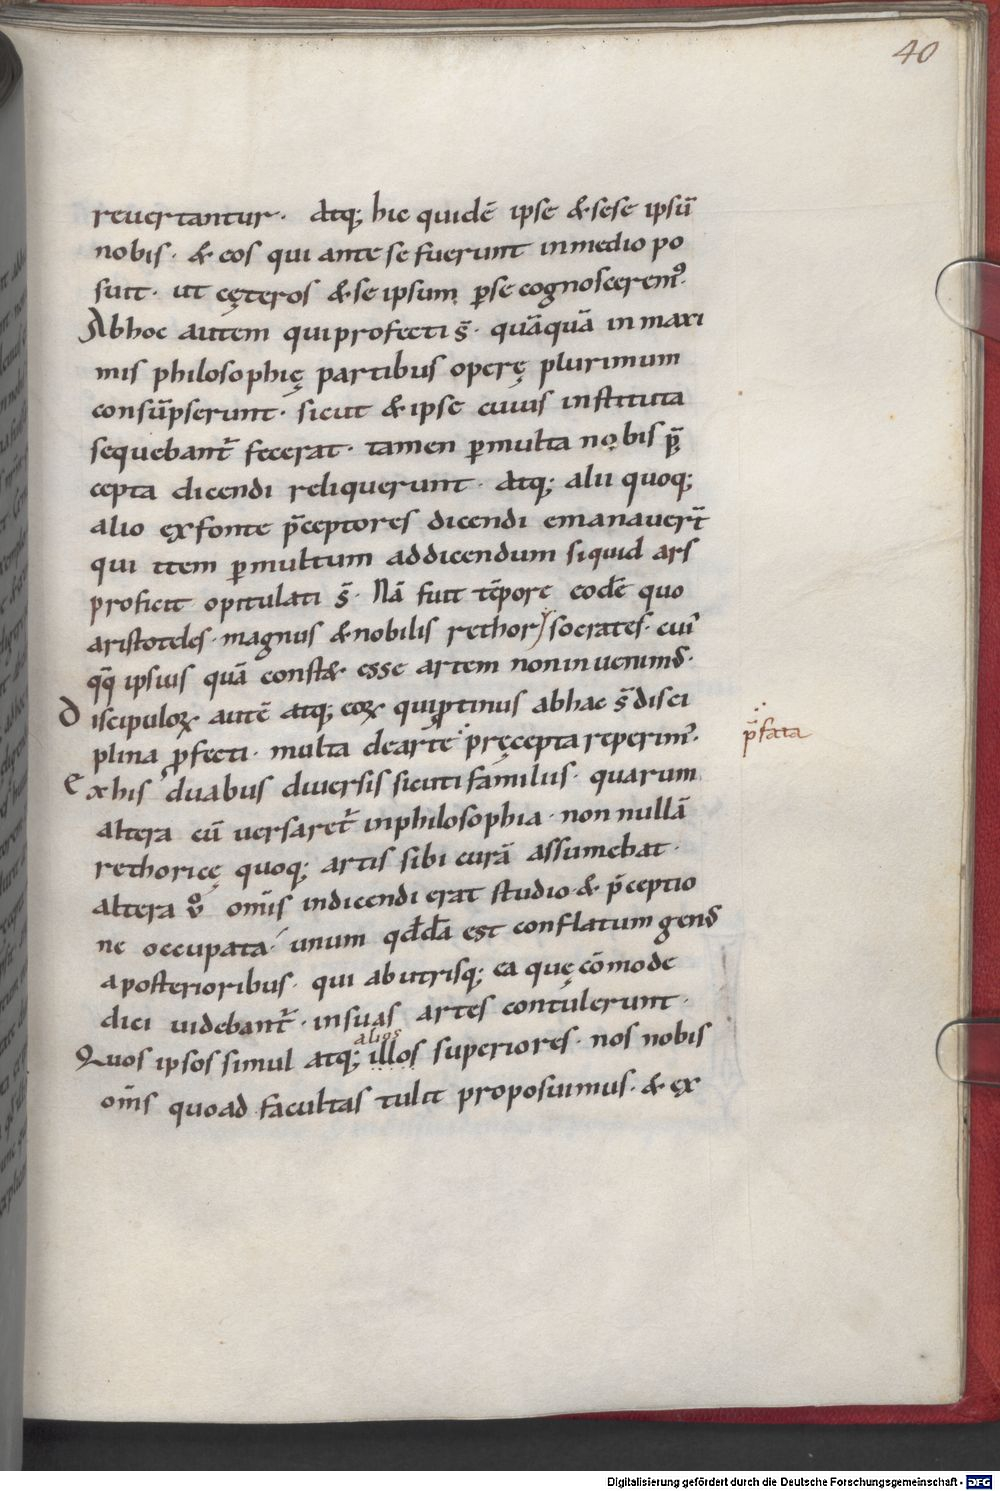 40
reuertantur. Atq; hic quidē ipse & sese ipsū
nobis. & eos qui ante se fuerunt inmedio po
suit. ut cęteros & se ipsum p̱se cognosceremꝰ.
Abhoc autem quiprofecti s̄. quāquā in maxi
mis philosophię partibus operę plurimum
consūpserunt. sicut & ipse cuius instituta
sequebant̄ fecerat. tamen p̱multa nobis p̄
cepta dicendi reliquerunt. Atq; alii quoq;
alio exfonte p̄ceptores dicendi emanauer̄t
qui item p̱multum addicendum siquid ars
proficit opitulati s̄. Nā fuit tēpore eodē quo
aristoteles. magnus & nobilis rethor / socrates. cuiꝰ
qq̄ ipsius quā constat esse artem noninuenimꝰ.
Discipuloꝝ autē atq; eoꝝ quiꝓtinus abhac s̄ disci
plina ꝓfecti. multa dearte pręcepta reperimꝰ.
p̄fata
Exhis duabus diuersis sicuti familiis. quarum
altera cū uersaret̄ inphilosophia. non nullā
rethoricę quoq; artis sibi curā assumebat.
altera ꝟo om̄is indicendi erat studio & p̄ceptio
ne occupata. unum qddā est conflatum genꝰ
aposterioribus. qui abutrisq; ea quę cōmode
dici uidebant̄. insuas artes contulerunt.
alios
Quos ipsos simul atq; illos superiores. nos nobis
om̄s quoad facultas tulit proposuimus. & ex
Digitalisierung gefördert durch die Deutsche Forschungsgemeinschaft - DFG